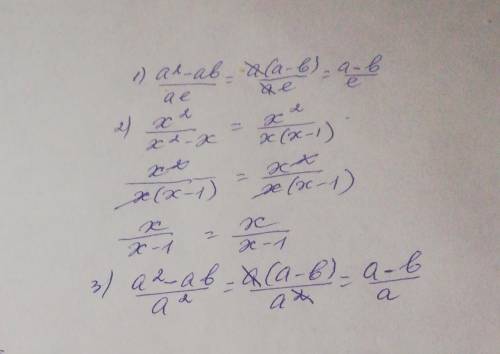 1) a²-ab/ae = a(a-b)/ae = a-b/e
2) x²/x²-x = x²/x(x-1)
x²/x(x-1) = x²/x(x-1)
x/x-1 = x/x-1
3) a²-ab/a² = a(a-b)/a² = a-b/a